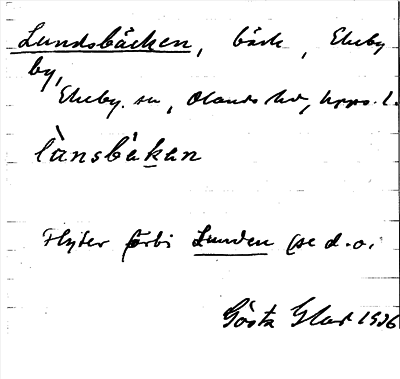 Lundsbäcken, bäck, Ekeby
by,
Ekeby sn, Olands hd, Upps. l.
lùnsbä̀kan
Flyter förbi Lunden (se d.o.
Gösta Glad 1936